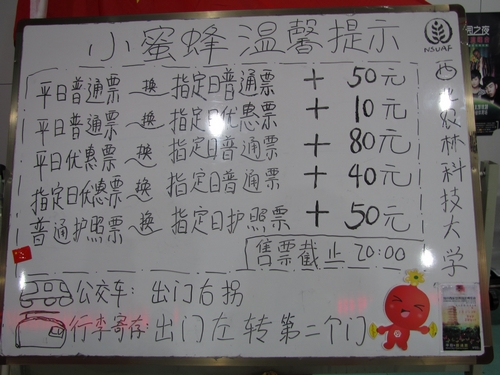 小蜜蜂 温馨提示
NSUAF
平日普通票 换 指定日普通票 + 50元
平日普通票 换 指定日优惠票 + 10元
平日优惠票 换 指定日普通票 + 80元
指定日优惠票 换 指定日普通票 + 40元
普通护照票 换 指定日护照票 + 50元
售票截止 20:00
西北农林科技大学
公交车: 出门右拐
行李寄存: 出门左转第二个门